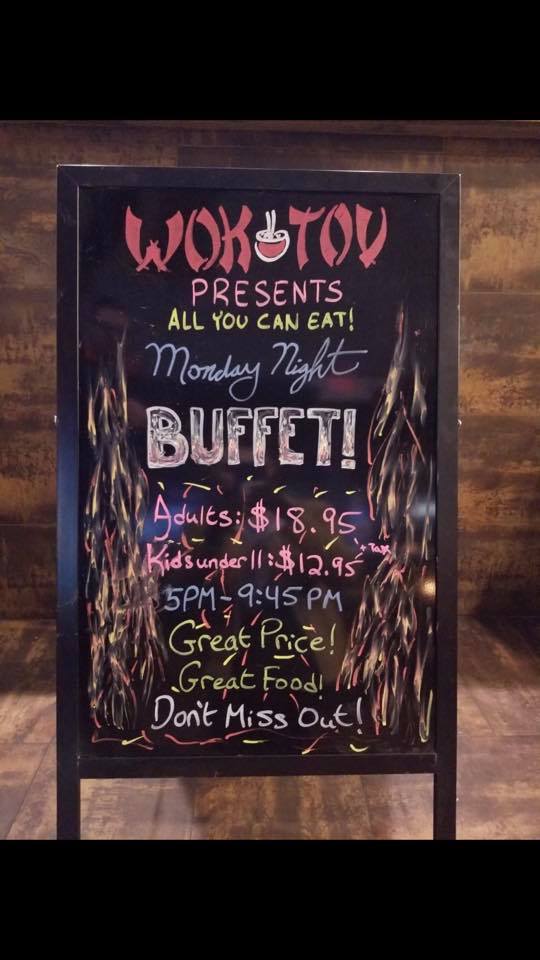 WOK TOV
PRESENTS
ALL YOU CAN EAT!
Monday Night
BUFFET!
Adults: $18.95
Kids under 11: $12.95 + Tax
5PM - 9:45 PM
Great Price!
Great Food!
Don't Miss Out!